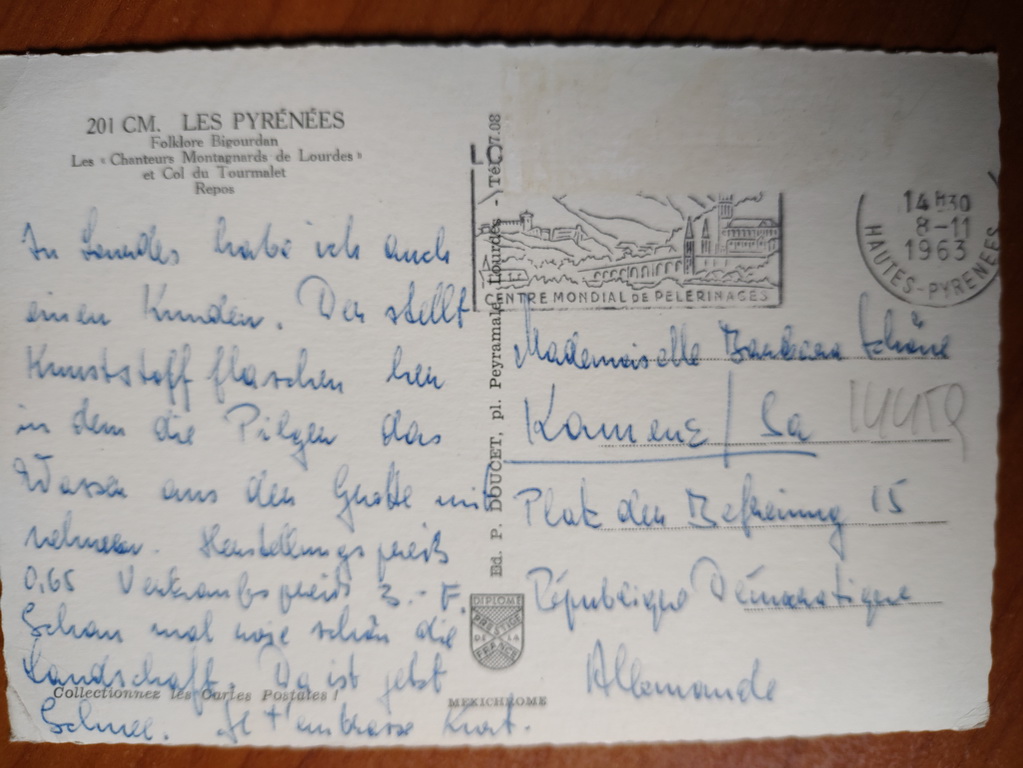 201 CM. LES PYRÉNÉES
Folklore Bigourdan
Les « Chanteurs Montagnards de Lourdes »
et Col du Tourmalet
Repos
In Lourdes habe ich auch
einen Kunden. Der stellt
Kunststoff flaschen her
in dem die Pilger das
Wasser aus der Grotte mit
nehmen. Herstellungspreis
0,65 Verkaufspreis 3.- F.
Schau mal wie schön die
Landschaft. Da ist jetzt
Schnee. Je t'embrasse Kurt.
Collectionnez les Cartes Postales !
Ed. P. DOUCET, pl. Peyramale, Lourdes - Tél. 7.08
DIPLOME
PRESTIGE
DE LA
FRANCE
MEXICHROME
LO
CENTRE MONDIAL DE PELERINAGES
14H30
8-11
1963
HAUTES-PYRENEES
Mademoiselle Barbara Schöne
Kamenz / Sa
Platz der Befreiung 15
République Démocratique
Allemande